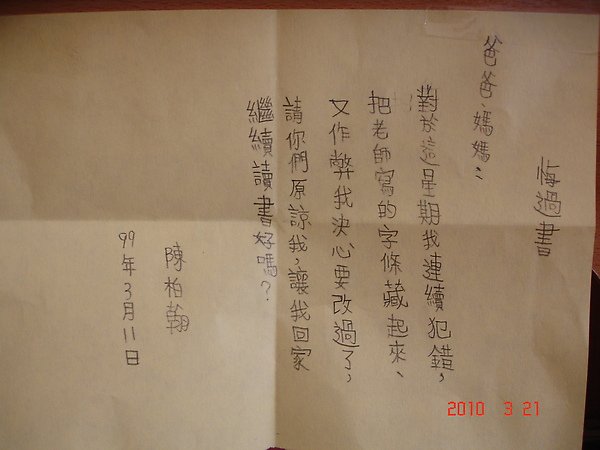 悔過書
爸爸、媽媽:
對於這星期我連續犯錯,
把老師寫的字條藏起來、
又作弊我決心要改過了,
請你們原諒我,讓我回家
繼續讀書好嗎?
陳柏翰
99年3月11日
2010 3 21